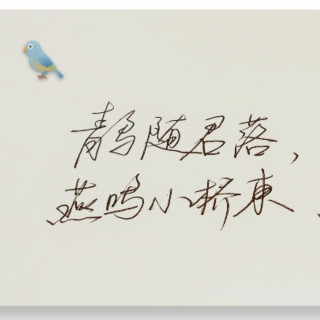 青鸟随君落，
燕鸣小桥東、